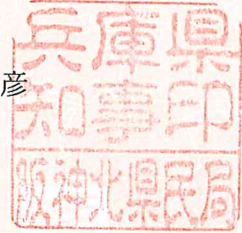 彦
兵庫県
知事印
阪神北県民局